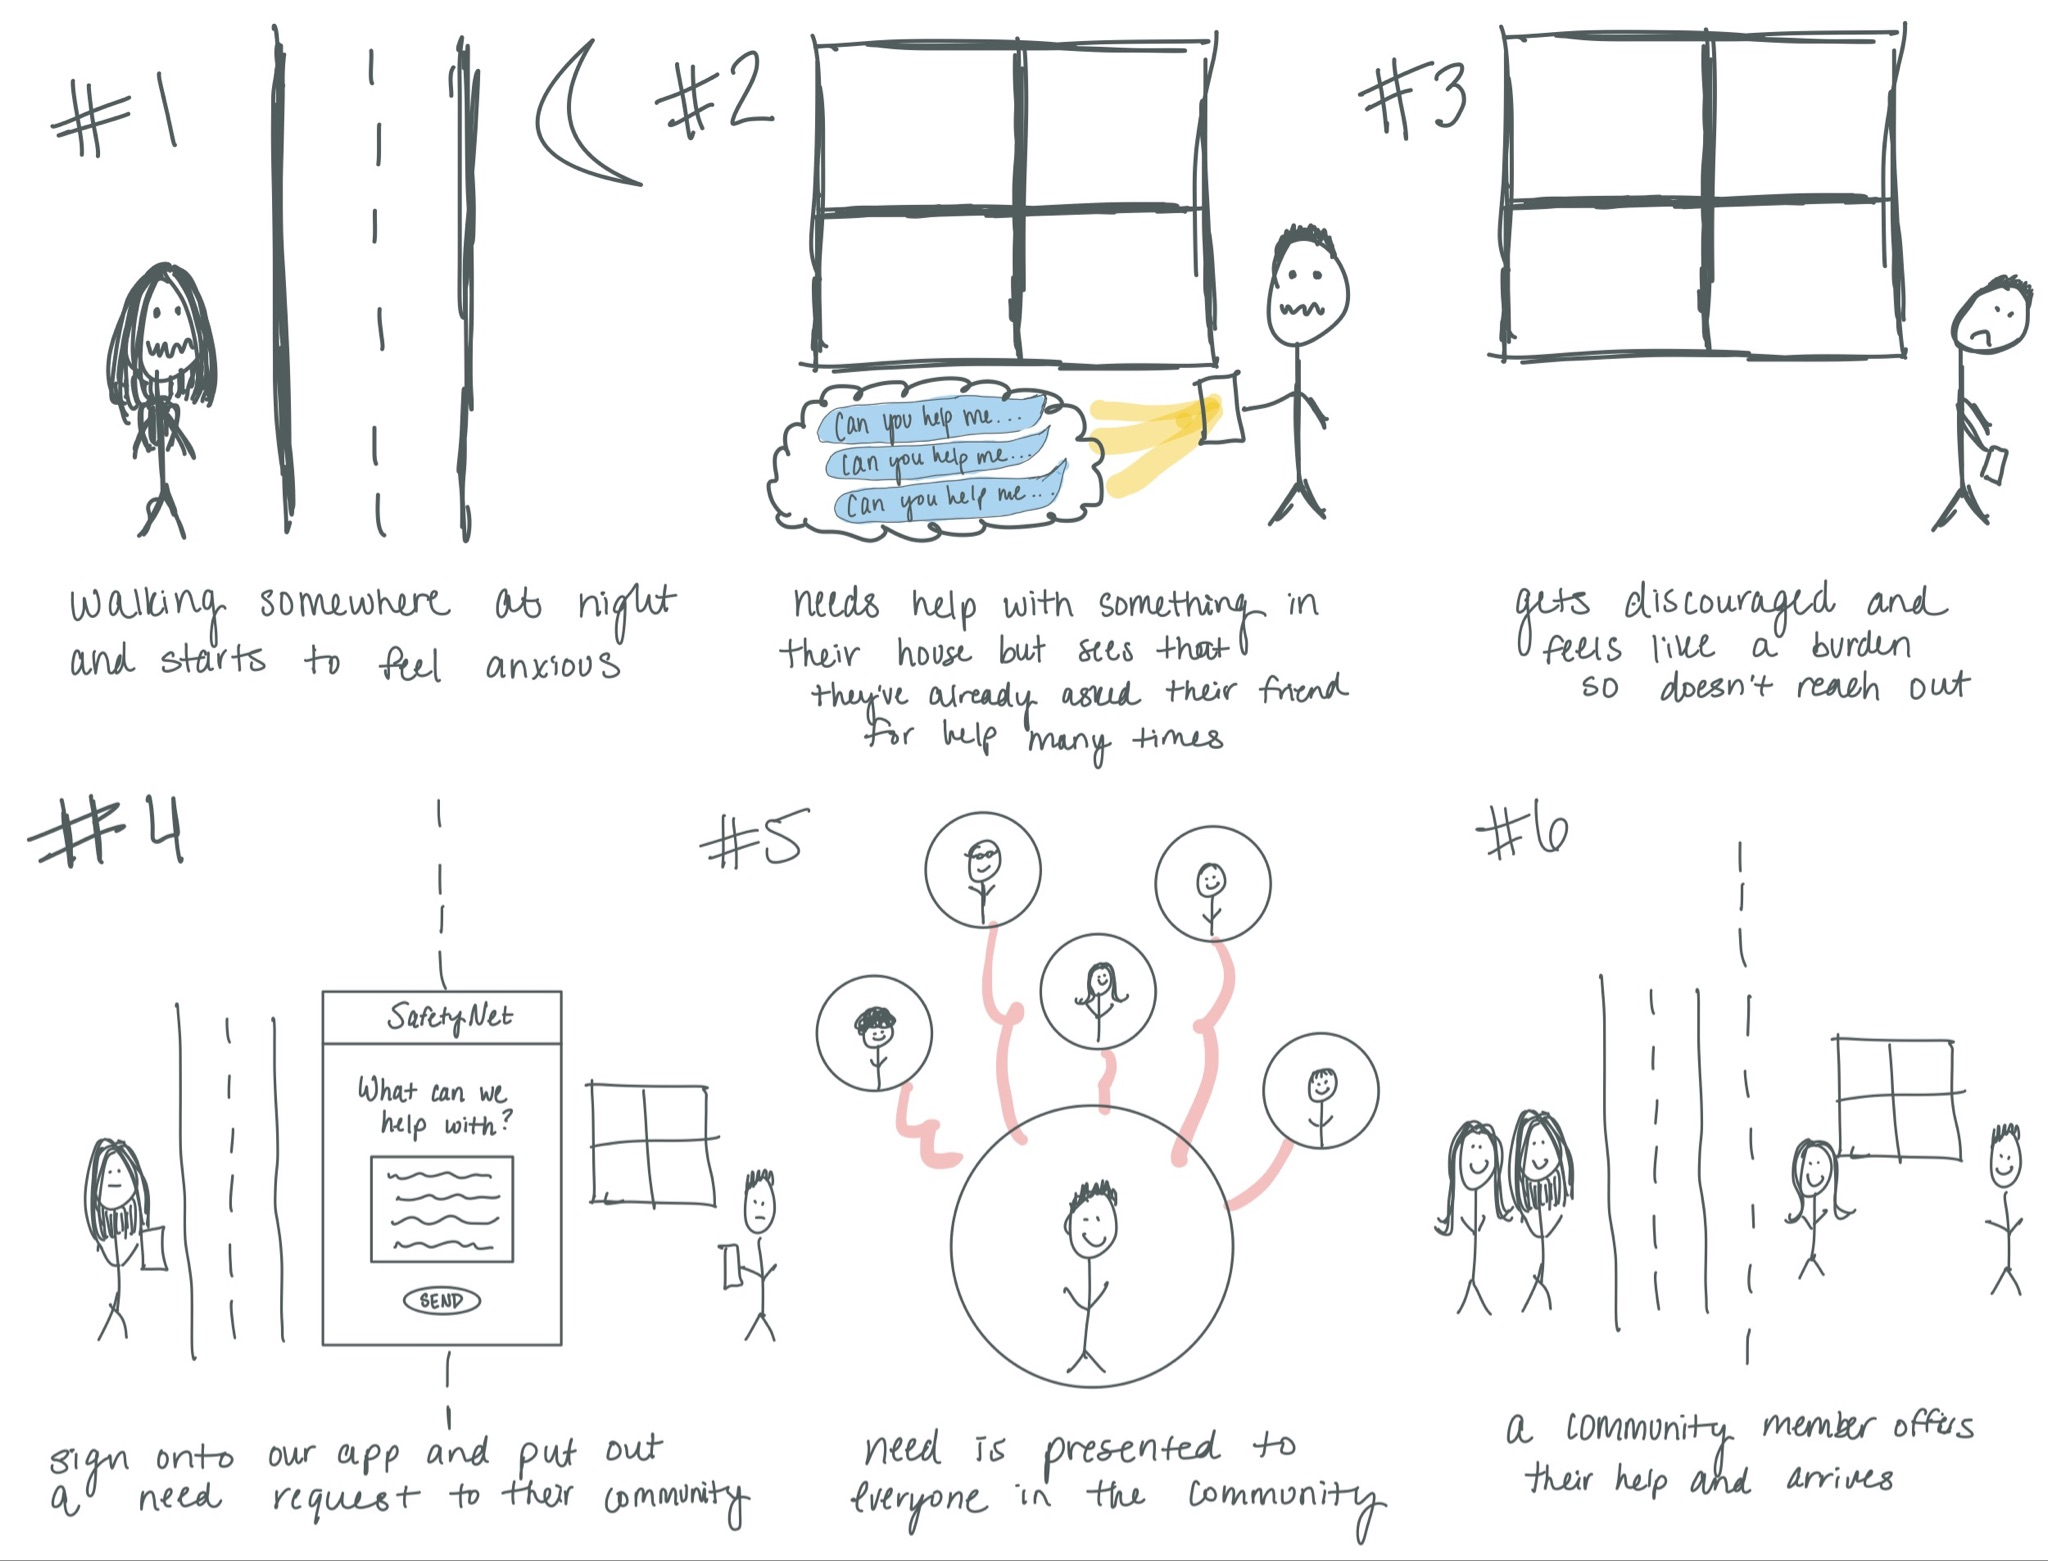 #1
walking somewhere at night
and starts to feel anxious
#2
Can you help me...
Can you help me...
Can you help me...
needs help with something in
their house but sees that
they've already asked their friend
for help many times
#3
gets discouraged and
feels like a burden
so doesn't reach out
#4
SafetyNet
What can we
help with?
SEND
sign onto our app and put out
a need request to their community
#5
need is presented to
everyone in the community
#6
a community member offers
their help and arrives